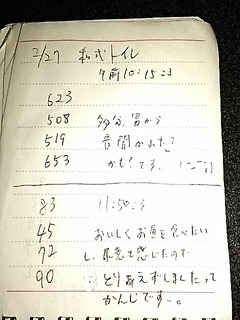 2/27 和式トイレ
午前10:15:3
623
508 多分、胃から
519 音聞かれた?
653 かも?です。
83 11:50:3
45 おいしくお昼を食べたい
72 し、尿意も感じたので
90 とりあえずしましたって
かんじです〜。